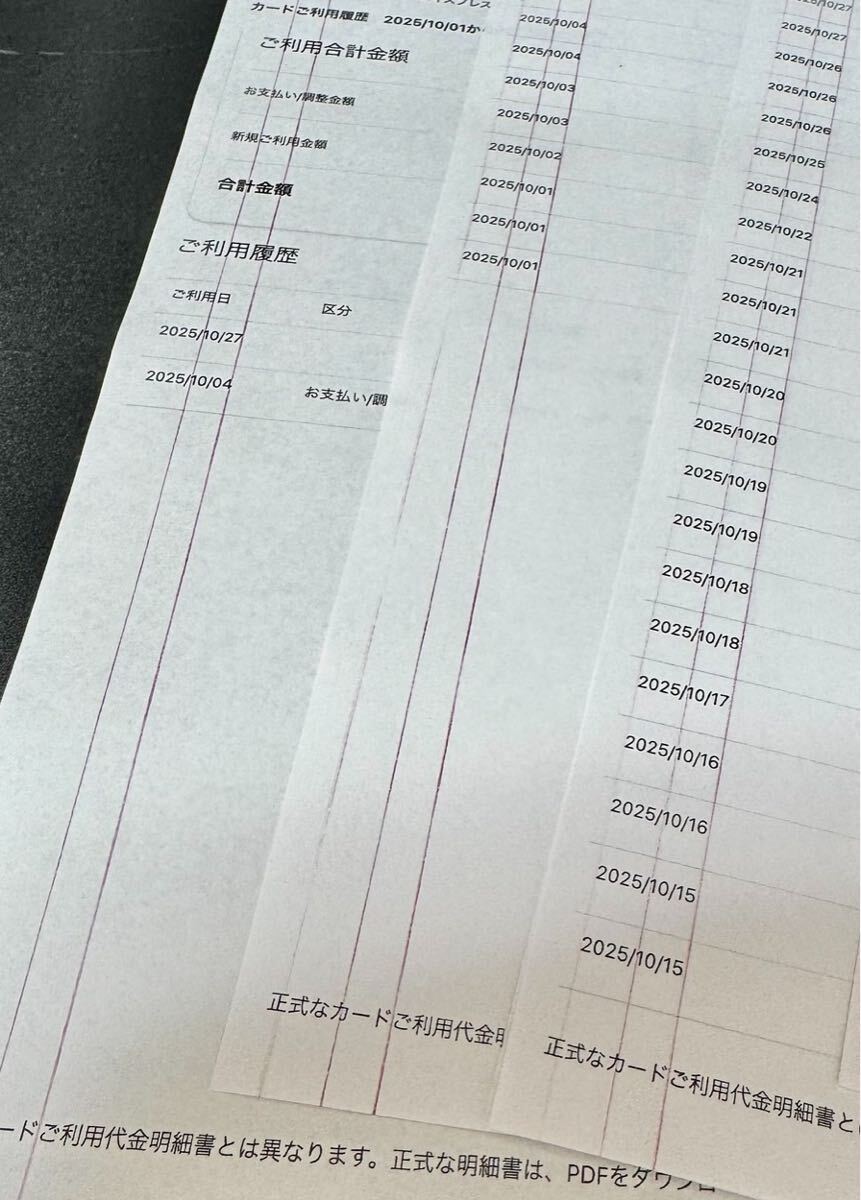 カードご利用履歴 2025/10/01か
ご利用合計金額
お支払い/調整金額
新規ご利用金額
合計金額
ご利用履歴
ご利用日 区分
2025/10/27
2025/10/04 お支払い/調
ードご利用代金明細書とは異なります。正式な明細書は、PDFをダウンロ
2025/10/04
2025/10/04
2025/10/03
2025/10/03
2025/10/02
2025/10/01
2025/10/01
2025/10/01
正式なカードご利用代金明
2025/10/27
2025/10/27
2025/10/26
2025/10/26
2025/10/26
2025/10/25
2025/10/24
2025/10/22
2025/10/21
2025/10/21
2025/10/21
2025/10/20
2025/10/20
2025/10/19
2025/10/19
2025/10/18
2025/10/18
2025/10/17
2025/10/16
2025/10/16
2025/10/15
2025/10/15
正式なカードご利用代金明細書と